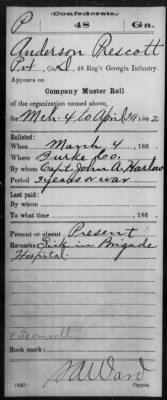 Confederate.
P 48 Ga.
Anderson Prescott
Pvt, Co. D, 48 Reg't Georgia Infantry.
Appears on
Company Muster Roll
of the organization named above,
for Mch. 4 to April 30 1862
Enlisted:
When March 4, 186 .
Where Burke Co.
By whom Capt. John A. Harlow
Period 3 years or war
Last paid:
By whom
To what time , 186 .
Present or absent Present
Remarks: Sick in Brigade
Hospital.
Book mark:
Ward
(642) Copyist.